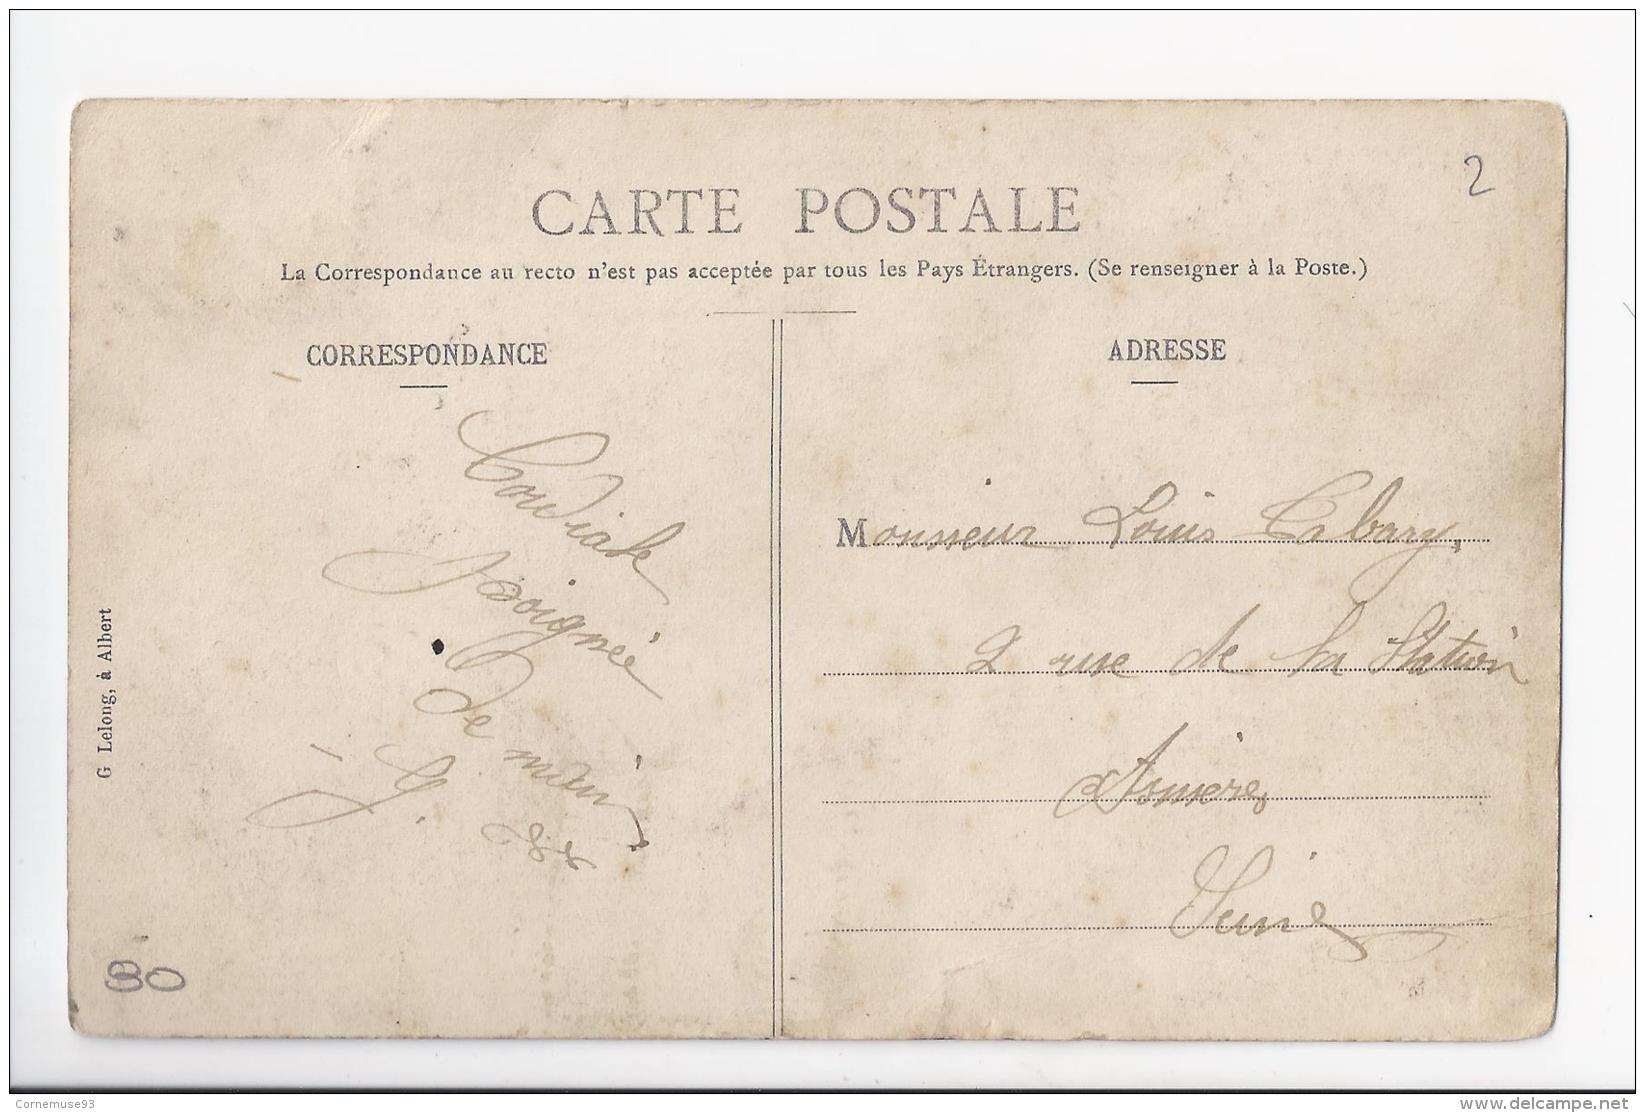 2
CARTE POSTALE
La Correspondance au recto n'est pas acceptée par tous les Pays Étrangers. (Se renseigner à la Poste.)
CORRESPONDANCE
Cordiale
Poignée
De main
G Lelong, à Albert
80
ADRESSE
Monsieur Louis
2 rue de la Station
Asnières
Seine
Cornemuse93
delcampe.net